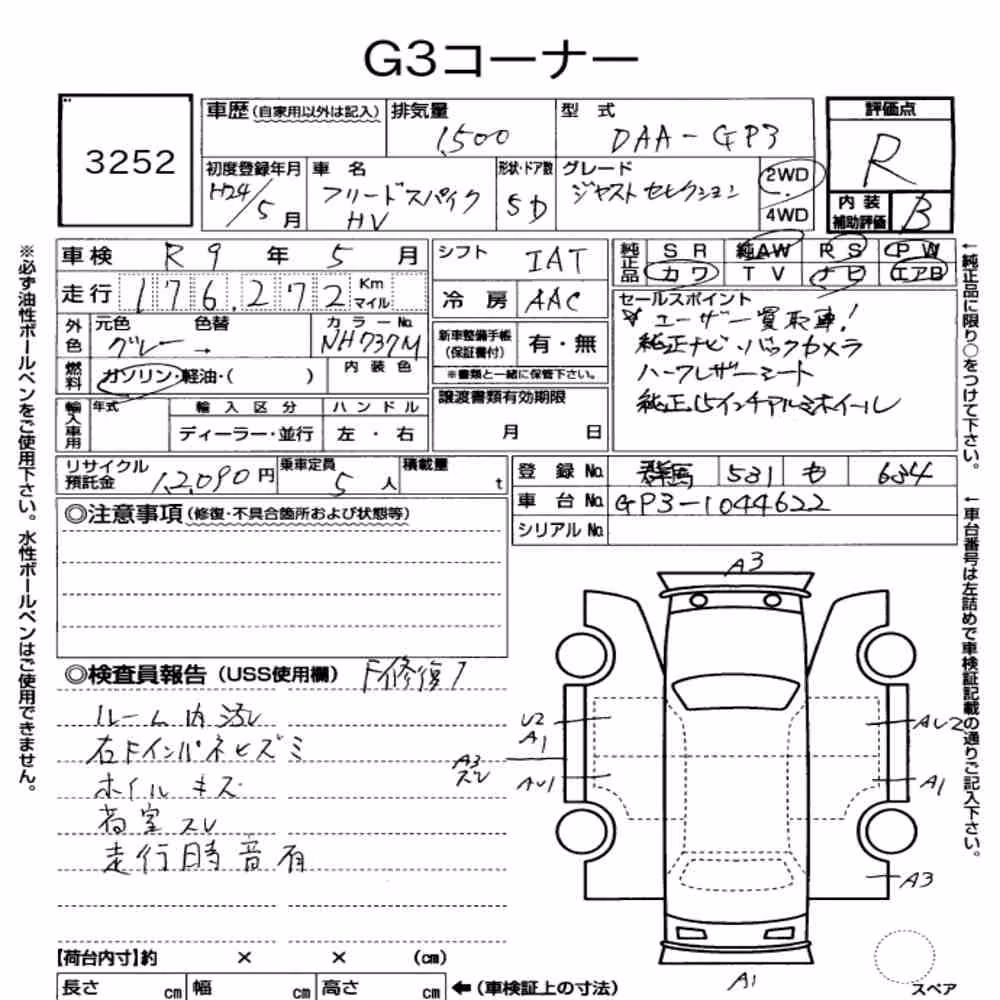 G3コーナー
3252
車歴(自家用以外は記入)
排気量
1,500
型 式
DAA-GP3
評価点
R
初度登録年月
H24/5月
車 名
フリードスパイク
HV
形状・ドア数
5D
グレード
ジャストセレクション
2WD
4WD
内 装
補助評価
B
車検 R9年 5月
走行 176,272 Km マイル
外色
元色 色替
グレー →
カラーNo.
NH737M
燃料
ガソリン・軽油・( )
内 装 色
輸入車用
年式
輸 入 区 分
ディーラー・並行
ハ ン ド ル
左 ・ 右
シフト IAT
冷 房 AAC
新車整備手帳
(保証書付)
有・無
※書類と一緒に保管下さい。
譲渡書類有効期限
月 日
純正品
SR 純AW RS PW
カワ TV ナビ エアB
セールスポイント
ユーザー買取車!
純正ナビ・バックカメラ
ハーフレザーシート
純正15インチアルミホイール
リサイクル
預託金
12,090円
乗車定員
5人
積載量
t
登 録 No. 群馬 531 も 634
車 台 No. GP3-1044622
シリアル No.
◎注意事項(修復・不具合箇所および状態等)
◎検査員報告(USS使用欄) F修復1
ルーム内汚レ
右Fインパネヒズミ
ホイルキズ
荷室スレ
走行時音有
A3
U2
A1
A3
スレ
AU1
AU2
A1
A3
A1
スペア
【荷台内寸】約 × × (cm)
長さ cm 幅 cm 高さ cm ←(車検証上の寸法)
※必ず油性ボールペンをご使用下さい。水性ボールペンはご使用できません。
←純正品に限り○をつけて下さい。
←車台番号は左詰めで車検証記載の通りご記入下さい。